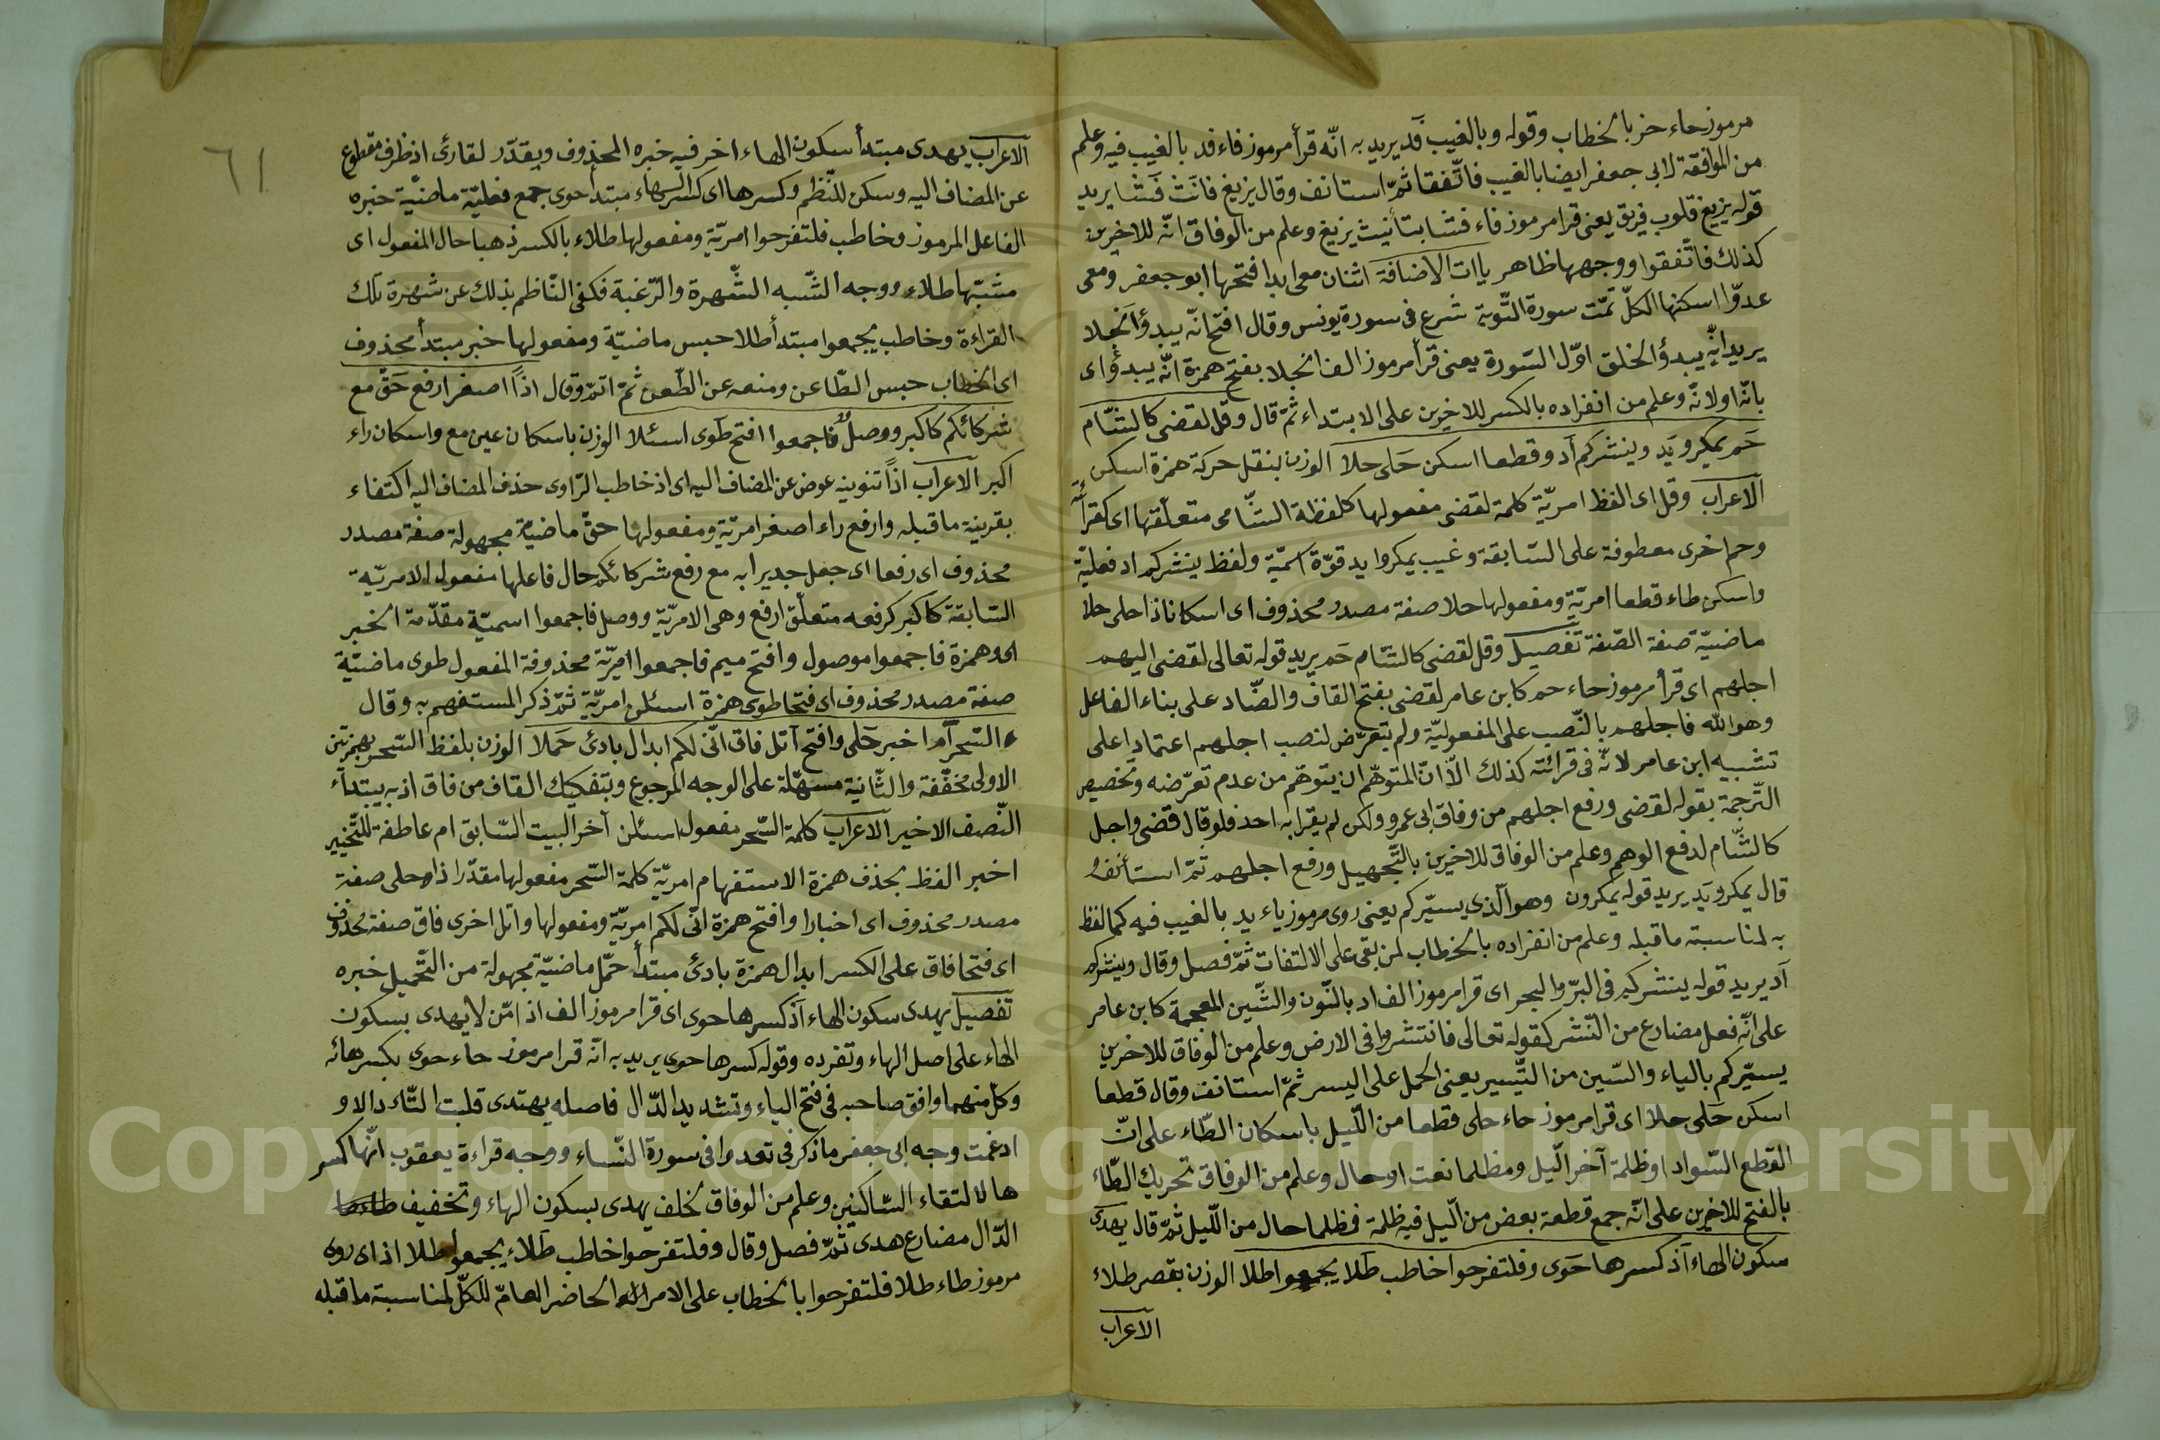 مرموز حاء حز بالخطاب وقوله وبالغيب قد يريد به انّه قرأ مرموز فاء فد بالغيب فيه وعلم
من الموافقة لابى جعفر ايضا بالغيب فاتّفقا ثمّ استانف وقال يزيغ فانّث فَشا يريد
قوله يزيغ قلوب فريق يعنى قرا مرموز فاء فشا بتأنيث يزيغ وعلم من الوفاق انّه للاخرين
كذلك فاتّفقوا ووجهها ظاهر ياات الاضافة اثنان معى ابدا فتحها ابو جعفر ومعى
عدوّا اسكنها الكلّ تمّت سورة التّوبة شرع فى سورة يونس وقال افتح انّه يبدؤا انجلا
يريد انّه يبدؤ الخلق اوّل السّورة يعنى قرأ مرموز الف انجلا بفتح همزة انّه يبدؤ اى
بانّه اولانّه وعلم من انفراده بالكسر للاخرين على الابتداء ثمّ قال وقل لقضى كالشّام
حَم يمكرو يَد وينشركم اَد وقطعا اسكن حَلى حلا الوزن بنقل حركة همزة اسكن
الاعراب وقل اى الفظ امريّة كلمة لقضى مفعولها كلفظة الشّامى متعلّقها اى كقرائة
وحم اخرى معطوفة على السّابقة وغيب يمكروا يد قوّة اسميّة ولفظ ينشركم اد فعليّة
واسكن طاء قطعا امريّة ومفعولها حلا صفة مصدر محذوف اى اسكانا ذا حلى حلا
ماضيّة صفة الصّفة تفصيل وقل لقضى كالشّام حَم يريد قوله تعالى لقضى اليهم
اجلهم اى قرأ مرموز حاء حم كابن عامر لقضى بفتح القاف والضّاد على بناء الفاعل
وهو الله فاجلهم بالنّصب على المفعوليّة ولم يتعرّض لنصب اجلهم اعتمادا على
تشبيه ابن عامر لانّه فى قرائته كذلك الّا انّ المتوهّم ان يتوهّم من عدم تعرّضه وتخصيص
التّرجمة بقوله لقضى ورفع اجلهم من وفاق ابى عمرو ولكن لم يقرا به احد فلو قال قضى واجل
كالشّام لدفع الوهم وعلم من الوفاق للاخرين بالتّجهيل ورفع اجلهم ثمّ استأنف و
قال يمكرو يَد يريد قوله يمكرون وهو الّذى يسيّركم يعنى روى مرموز ياء يد بالغيب فيه كما لفظ
به لمناسبة ما قبله وعلم من انفراده بالخطاب لمن بقى على الالتفات ثمّ فصل وقال وينشركم
اَد يريد قوله ينشركم فى البرّ والبحر اى قرا مرموز الف اد بالنّون والشّين المعجمة كابن عامر
على انّه فعل مضارع من النّشر كقوله تعالى فانتشروا فى الارض وعلم من الوفاق للاخرين
يسيّركم بالياء والسّين من التّسيير يعنى الحمل على اليسر ثمّ استانف وقال قطعا
اسكن حَلى حلا اى قرا مرموز حاء حلى قطعا من اللّيل باسكان الطّاء على انّ
القطع السّواد او ظلمة آخر الّيل ومظلما نعت او حال وعلم من الوفاق تحريك الطّاء
بالفتح للاخرين على انّه جمع قطعة بعض من الّيل فيه ظلمة فظلما حال من اللّيل ثمّ قال يهدى
سكون الهاء اَذ كسرها حَوى وفلتفرحوا خاطب طَلا يجمعوا طلا الوزن بقصر طلاء
الاعراب
٦١
الاعراب يهدى مبتدأ سكون الهاء اخر فيه خبره المحذوف ويقدّر لقارئ اذ ظرف مقطوع
عن المضاف اليه وسكن للنّظم وكسرها اى كسر الهاء مبتدأ حوى جمع فعليّة ماضيّة خبره
الفاعل المرموز وخاطب فلتفرحوا امريّة ومفعولها طلاء بالكسر ذهبا حال المفعول اى
مشبّها طلاء ووجه الشّبه الشّهرة والرّغبة فكفى النّاظم بذلك عن شهرة تلك
القراءة وخاطب يجمعوا مبتدأ طلا حبس ماضيّة ومفعولها خبر مبتدأ محذوف
اى الخطاب حبس الطّاعن ومنعه عن الطّعن ثمّ اتمّ وقال اذاً اصغر ارفع حَقّ مع
شركائكم كاكبر ووصلُ فاجمعوا افتح طَوى اسئلا الوزن باسكان عين مع واسكان راء
اكبر الاعراب اذاً تنوينه عوض عن المضاف اليه اى اذ خاطب الرّاوى حذف المضاف اليه اكتفاء
بقرينة ما قبله وارفع راء اصغر امريّة ومفعولها حقّ ماضيّة مجهولة صفة مصدر
محذوف اى رفعا اى جعل جديرا به مع رفع شركائكم حال فاعلها مفعول الامريّة
السّابقة كاكبر كرفعه متعلّق ارفع وهى الامريّة ووصل فاجمعوا اسميّة مقدّمة الخبر
اى وهمزة فاجمعوا موصول وافتح ميم فاجمعوا امريّة محذوفة المفعول طوى ماضيّة
صفة مصدر محذوف اى فتحا طوى همزة اسئلن امريّة ثمّ ذكر المستفهم به وقال
ءالسّحر اَم اخبر حَلى وافتح اَتل فاق انّى لكم ابدال بادئ حَملا الوزن بلفظ السّحر بهمزتين
الاولى مخفّفة والثّانية مسهّلة على الوجه المرجوع وبتفكيك القاف من فاق اذ به يبتدأء
النّصف الاخير الاعراب كلمة السّحر مفعول اسئلن آخر البيت السّابق ام عاطفة للتّخيير
اخبر الفظ بحذف همزة الاستفهام امريّة كلمة السّحر مفعولها مقدّرا ذا حلى صفة
مصدر محذوف اى اخبارا وافتح همزة انّى لكم امريّة ومفعولها واتل اخرى فاق صفة محذوف
اى فتحا فاق على الكسر ابدال همزة بادئ مبتدأ حمّل ماضيّة مجهولة من التّحميل خبره
تفصيل يهدى سكون الهاء اَذ كسرها حوى اى قرا مرموز الف اذ امّن لا يهدى بسكون
الهاء على اصل الهاء وتفرده وقوله كسرها حوى يريد به انّه قرا مرموز حاء حوى بكسر هائه
وكلّ منهما وافق صاحبه فى فتح الياء وتشديد الدّال فاصله يهتدى قلبت التّاء دالا و
ادغمت وجه ابى جعفر ما ذكر فى تعدوا فى سورة النّساء ووجه قراءة يعقوب انّها كسر
ها لالتقاء السّاكنين وعلم من الوفاق لخلف يهدى بسكون الهاء وتخفيف
الدّال مضارع هدى ثمّ فصل وقال وفلتفرحوا خاطب طَلاء يجمعوا طلا اذ اى روى
مرموز طاء طلا فلتفرحوا بالخطاب على الامر الحاضر العامّ للكلّ لمناسبة ما قبله
Copyright © King Saud University